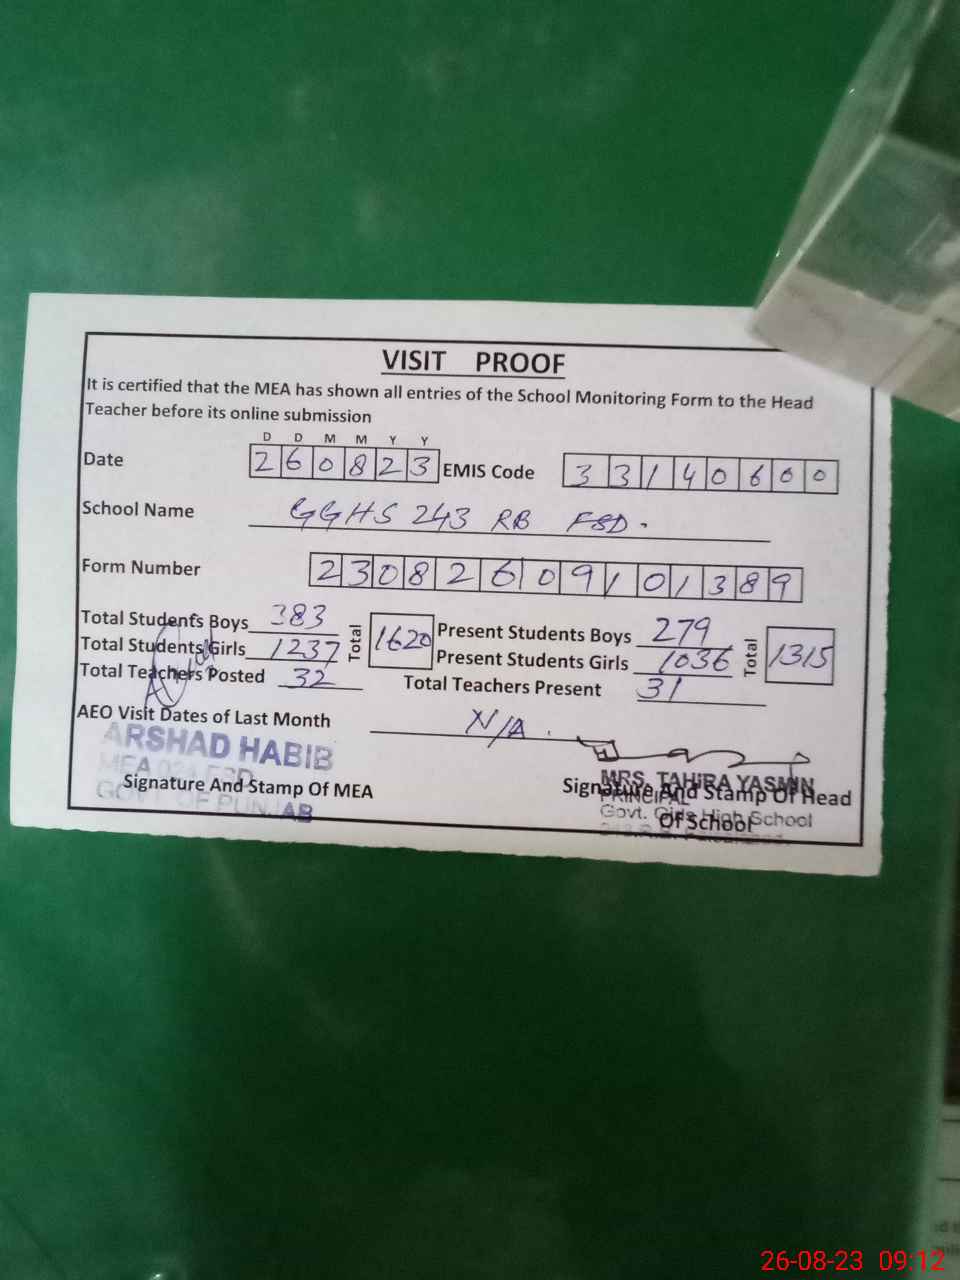 VISIT PROOF
It is certified that the MEA has shown all entries of the School Monitoring Form to the Head
Teacher before its online submission
D D M M Y Y
Date 260823 EMIS Code 33140600
School Name GGHS 243 RB FSD.
Form Number 23082609101389
Total Students Boys 383 Total 1620 Present Students Boys 279 Total 1315
Total Students Girls 1237 Present Students Girls 1036
Total Teachers Posted 32 Total Teachers Present 31
AEO Visit Dates of Last Month N/A.
ARSHAD HABIB
MEA
GOVT OF PUNJAB
Signature And Stamp Of MEA
MRS. TAHIRA YASMIN
PRINCIPAL
Govt. Girls High School
Signature And Stamp Of Head
Of School
26-08-23 09:12